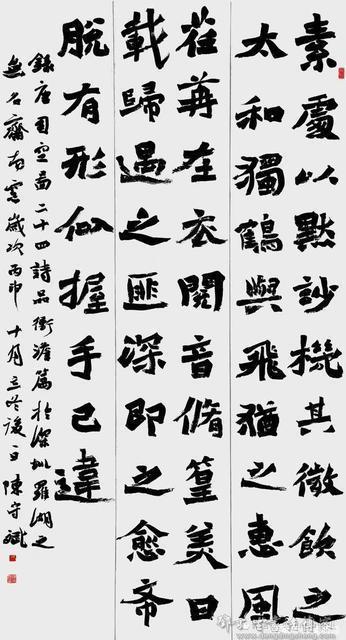 素處以默玅機其微飲之
太和獨鶴與飛猶之惠風
荏苒在衣閱音脩篁美曰
載歸遇之匪深即之愈希
脫有形似握手已違
錄唐司空圖二十四詩品衝澹篇於深圳羅湖之
無名齋南窗歲次丙申十月立冬後一日陳守斌